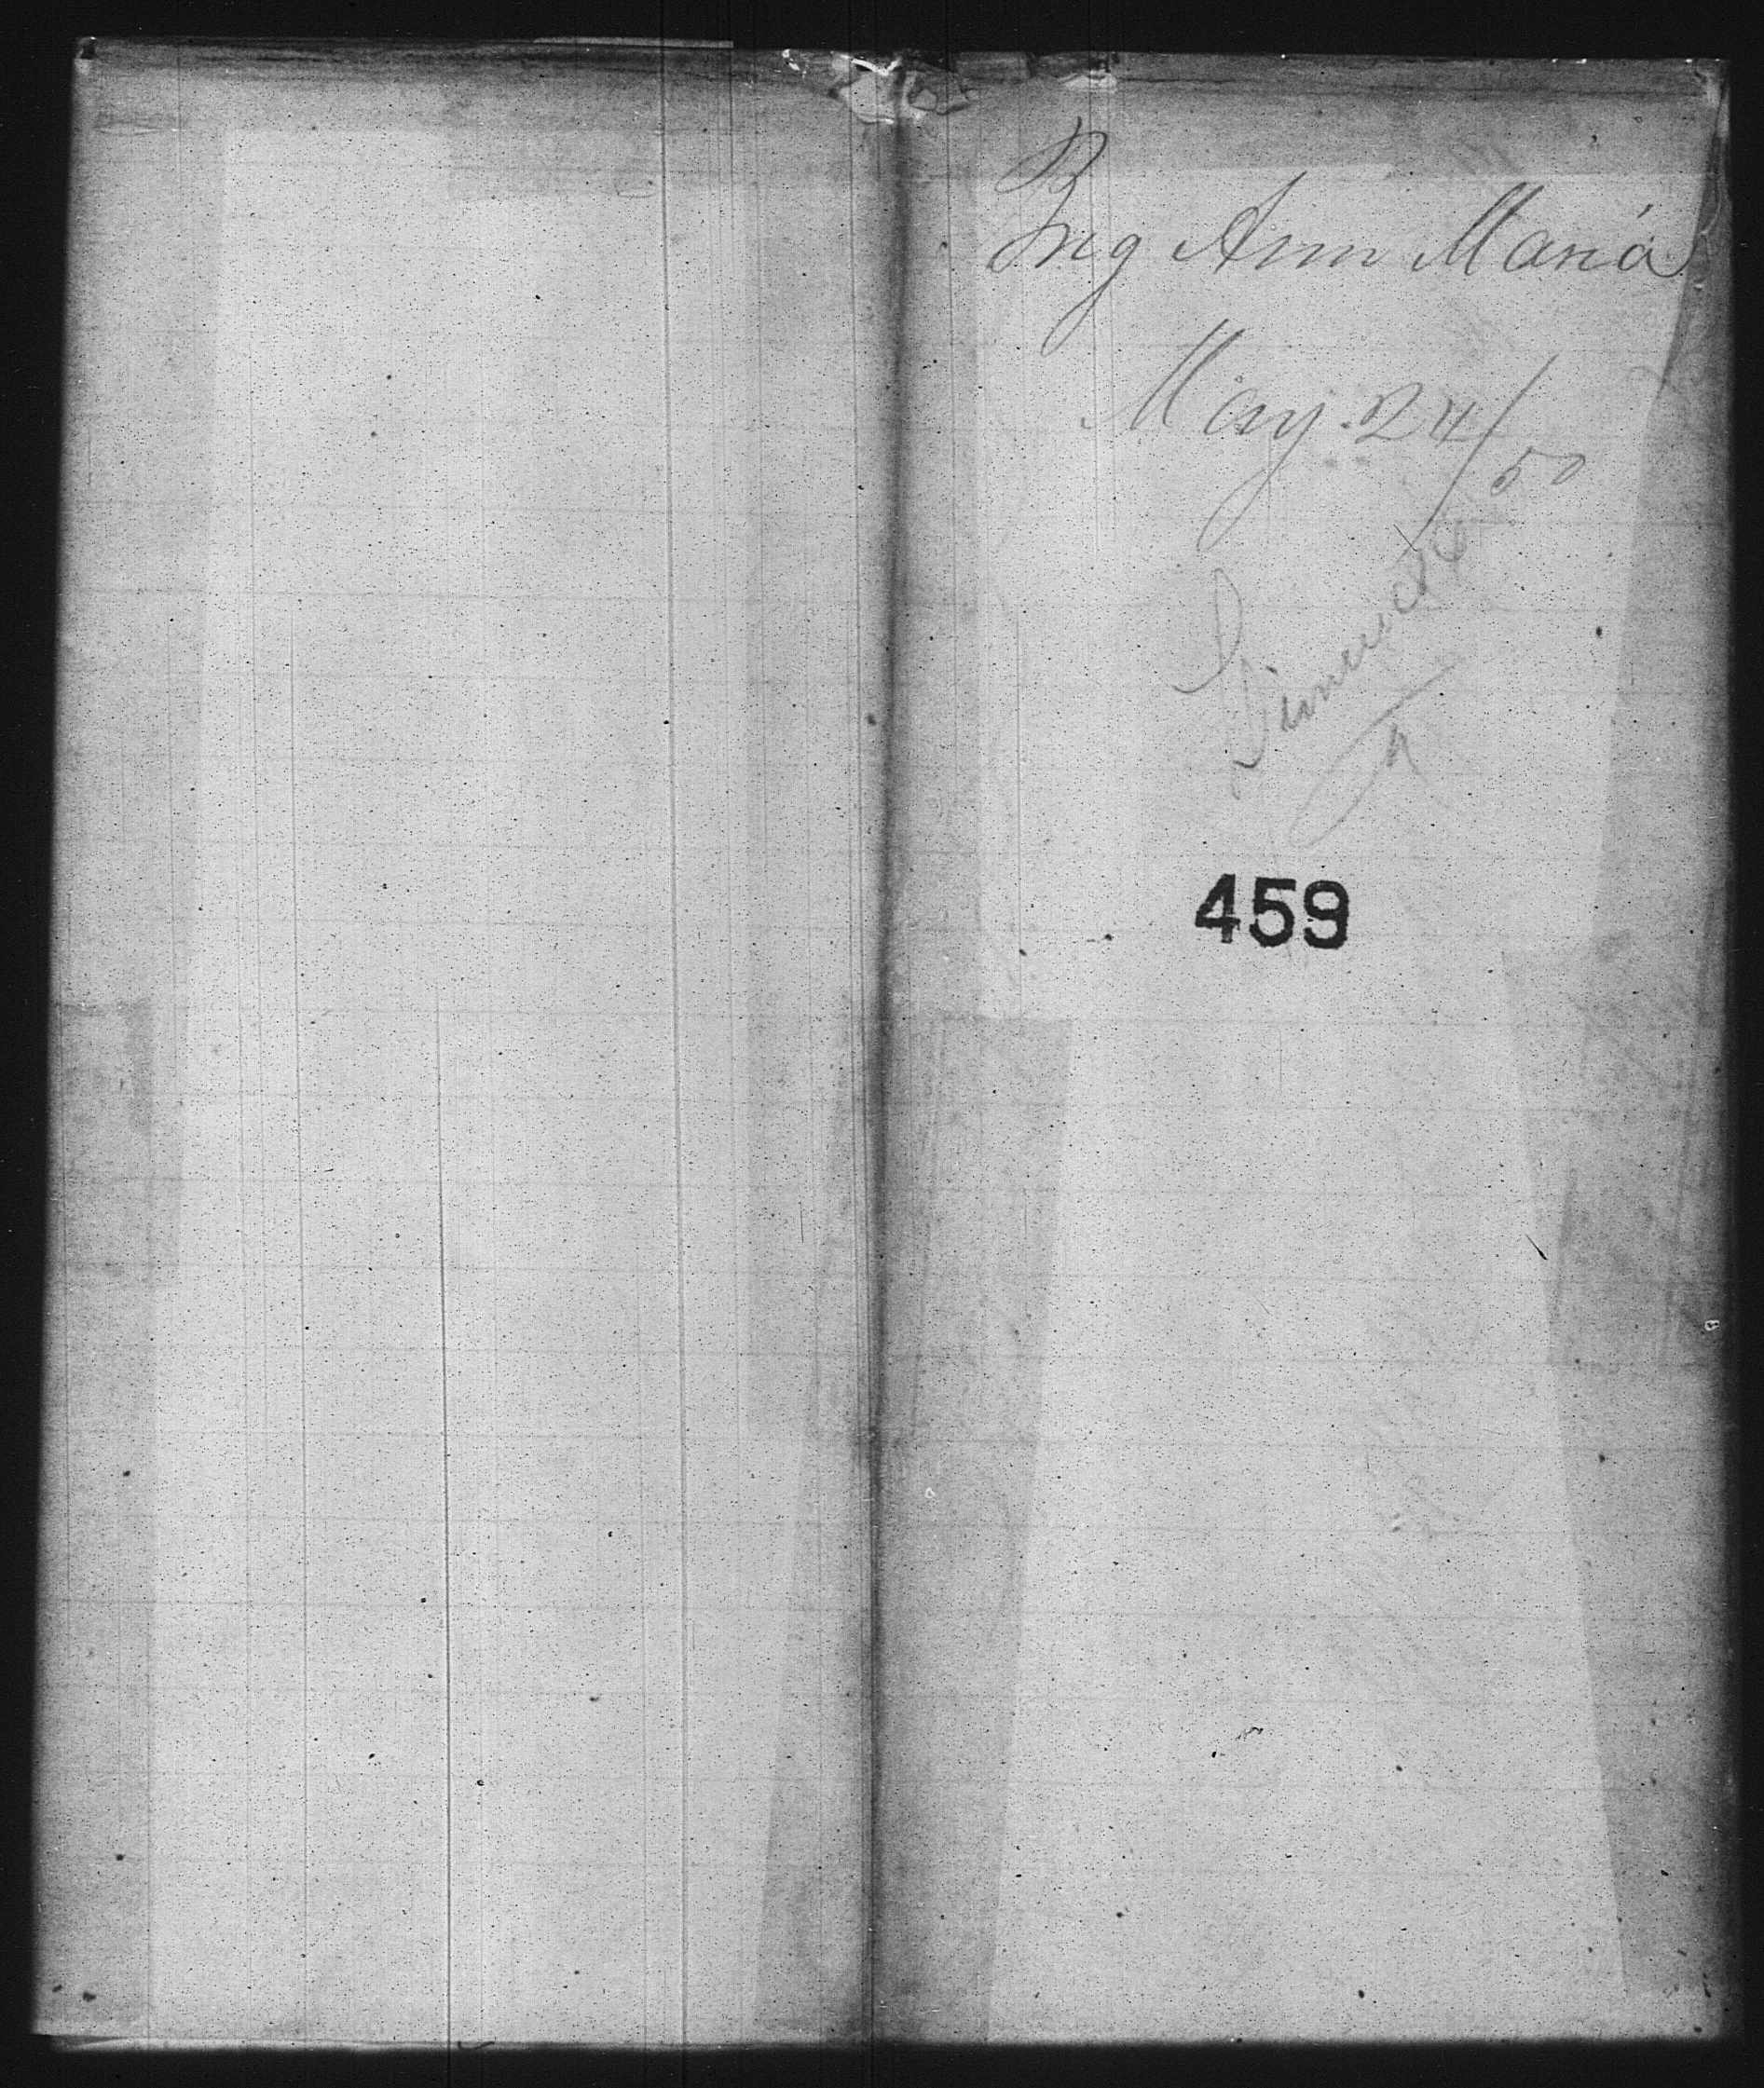 Brig Ann Maria
May 24/50
Limerick
459